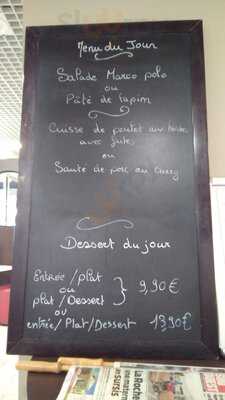 Menu du Jour
Salade Marco polo
ou
Pâté de lapin
Cuisse de poulet au
avec frites
ou
Sauté de porc au curry
Dessert du jour
Entrée / plat
ou
plat / Dessert
9,90€
ou
entrée / Plat / Dessert 13,90€
La Roche